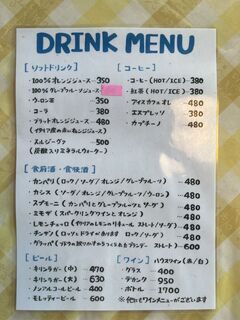 DRINK MENU
[ソフトドリンク]
・100%オレンジジュース ― 350
・100%グレープフルーツジュース
・ウーロン茶 350
・コーラ 380
・ブラッドオレンジジュース ― 480
(イタリア産の赤いオレンジジュース)
・スルジーヴァ 500
(炭酸入りミネラルウォーター)
[コーヒー]
・コーヒー(HOT/ICE) 380
・紅茶(HOT/ICE) 380
・アイスカフェオレ 480
・エスプレッソ 380
・カプチーノ 480
[食前酒・食後酒]
・カンパリ(ロック/ソーダ/オレンジ/グレープフルーツ) ― 480
・カシス(ソーダ/オレンジ/グレープフルーツ/ウーロン) ― 480
・スプモーニ(カンパリとグレープフルーツとソーダ) ― 480
・ミモザ(スパークリングワインとオレンジ) 480
・レモンチェッロ(イタリアのレモンのリキュール ストレート/ソーダ) ― 480
・チンザノ(ロック/ソーダ) 480
・グラッパ ストレート) ― 600
[ビール]
・キリンラガー(中) ― 470
・キリンラガー(大) ― 630
・ノンアルコールビール ― 400
・モレッティービール ― 600
[ワイン] ハウスワイン(赤/白)
・グラス ― 400
・デカンタ ― 950
・ボトル ― 1700
※他にもワインメニューがございます